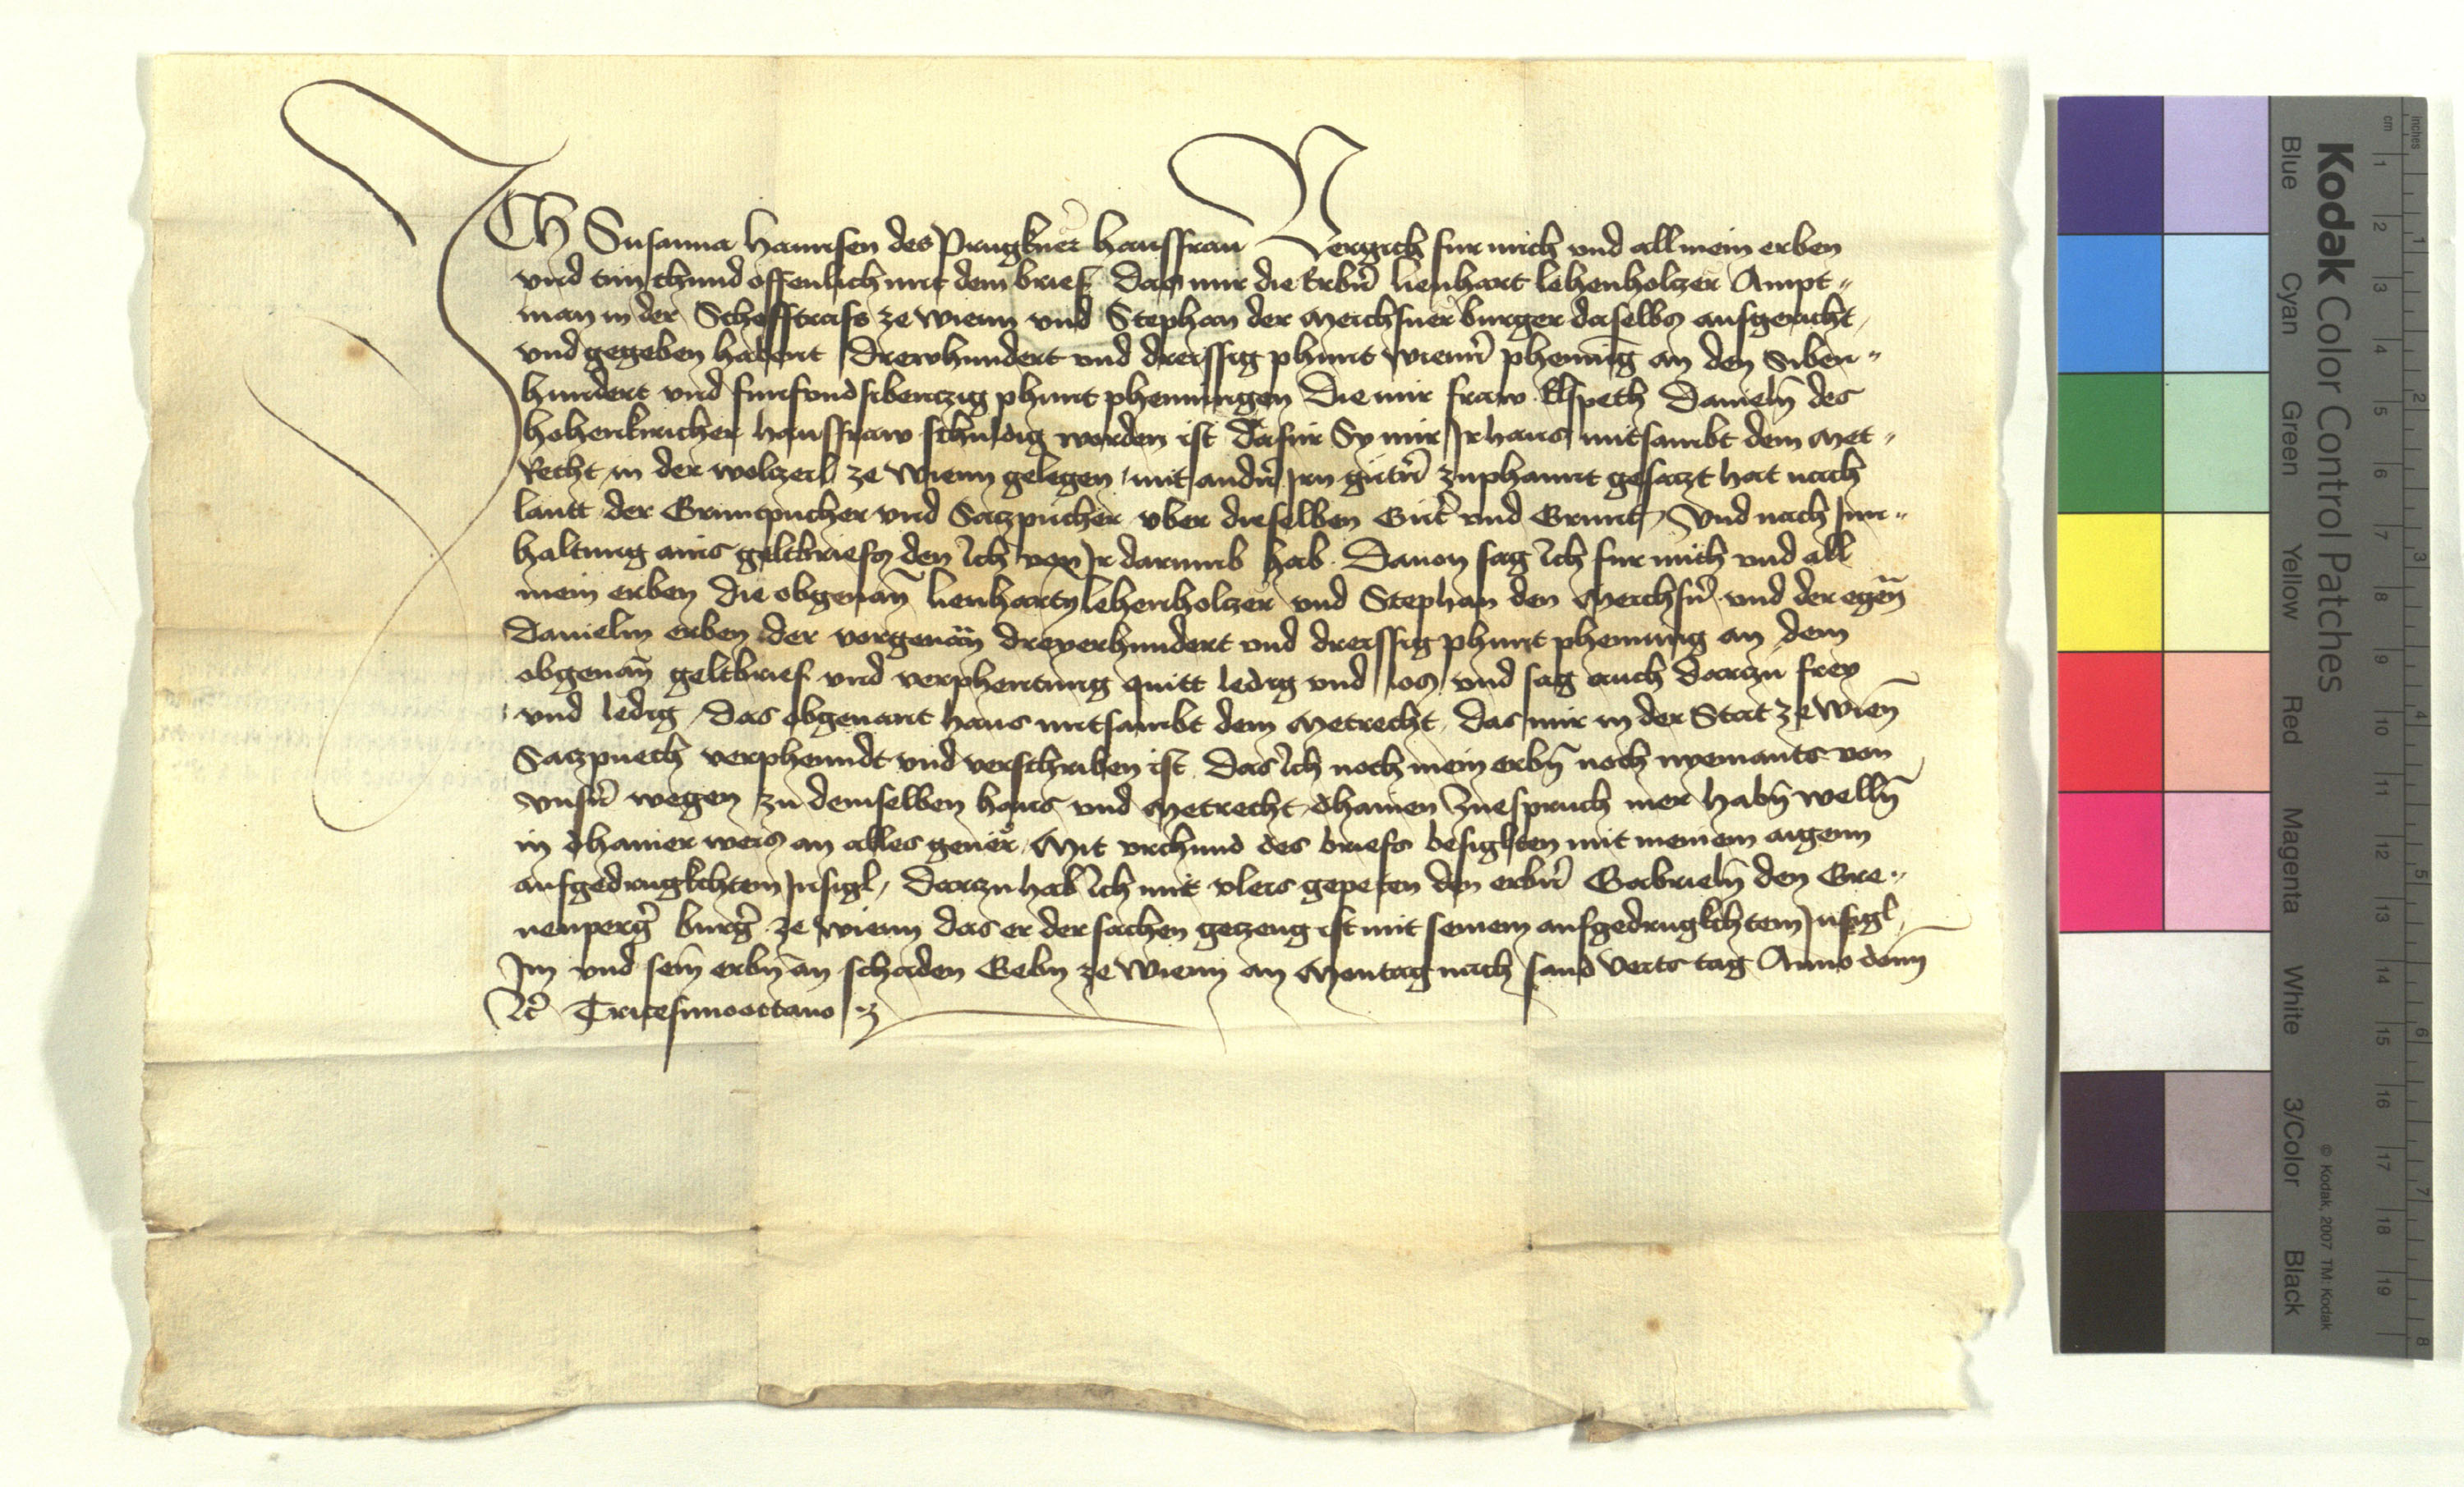 ICh Susanna Hannsen des Prugkner hausfrau Vergich fur mich vnd all mein erben
vnd tun chund offenlich mit dem brief Das mir die Erbn̄ lienhart lehenholczer Ampt„
man in der Scheffstrass ze wienn vnd Stephan der Meichsner burger daselbs ausgericht
vnd gegeben habent Drewhundert vnd dreissig phunt wienn̄ phennīg an den Siben„
hundert vnd funfvndsibenczig phunt phenningen Die mir fraw Elspeth Danieln̄ des
hohenkircher hausfraw schuldig worden ist dafur Sy mir Ir haus mitsambt dem Met„
Recht in der wolczeil ze wienn gelegen mit andn̄ Irn gutn̄ zuphannt gesaczt hat nach
lautt der Gruntpucher vnd Saczpucher vber dieselben Gut̄ vnd Grunt Vnd nach Inn„
haltung ains geltbriefs den Ich von Ir darumb hab Dauon sag Ich fur mich vnd all
mein erben die obgenan̄ lienhartn lehenholczer vnd Stephan den Meichsn̄ vnd der egen̄
Danielin erben der vorgenan̄ dreyerhundert vnd dreissig phunt phenning an dem
obgenan̄ geltbrief vnd verphentung quitt ledig vnd los vnd sag auch darzu frey
vnd ledig das obgenant haus mitsambt dem Metrecht das mir in der Stat ze wien̄
Saczpuech verphenndt vnd verschriben ist Das Ich noch mein erbn̄ noch nyemants von
vnsn̄ wegen zu demselben haus vnd Metrecht dhainen Zuespruch mer habn̄ welln̄
in dhainer weis an alles geuer Mit vrchund des briefs besigten mit meinem aigenn
aufgedrugkchtem Insigl Darzu hab Ich mit vleis gepeten den erbn̄ Gabrieln̄ den Gre„
nenperḡ burḡ ze wienn das er der sachen geczeug ist mit seinem aufgedrugkchtem Insigl
Im vnd sein̄ erbn̄ an schaden Gebn ze wienn an Montag nach sand veits tag Anno domn
etc̄ Tricesimooctauo
Kodak Color Control Patches
Blue Cyan Green Yellow Red Magenta White 3/Color Black
© Kodak, 2007 TM: Kodak
inches 1 2 3 4 5 6 7 8
cm 1 2 3 4 5 6 7 8 9 10 11 12 13 14 15 16 17 18 19